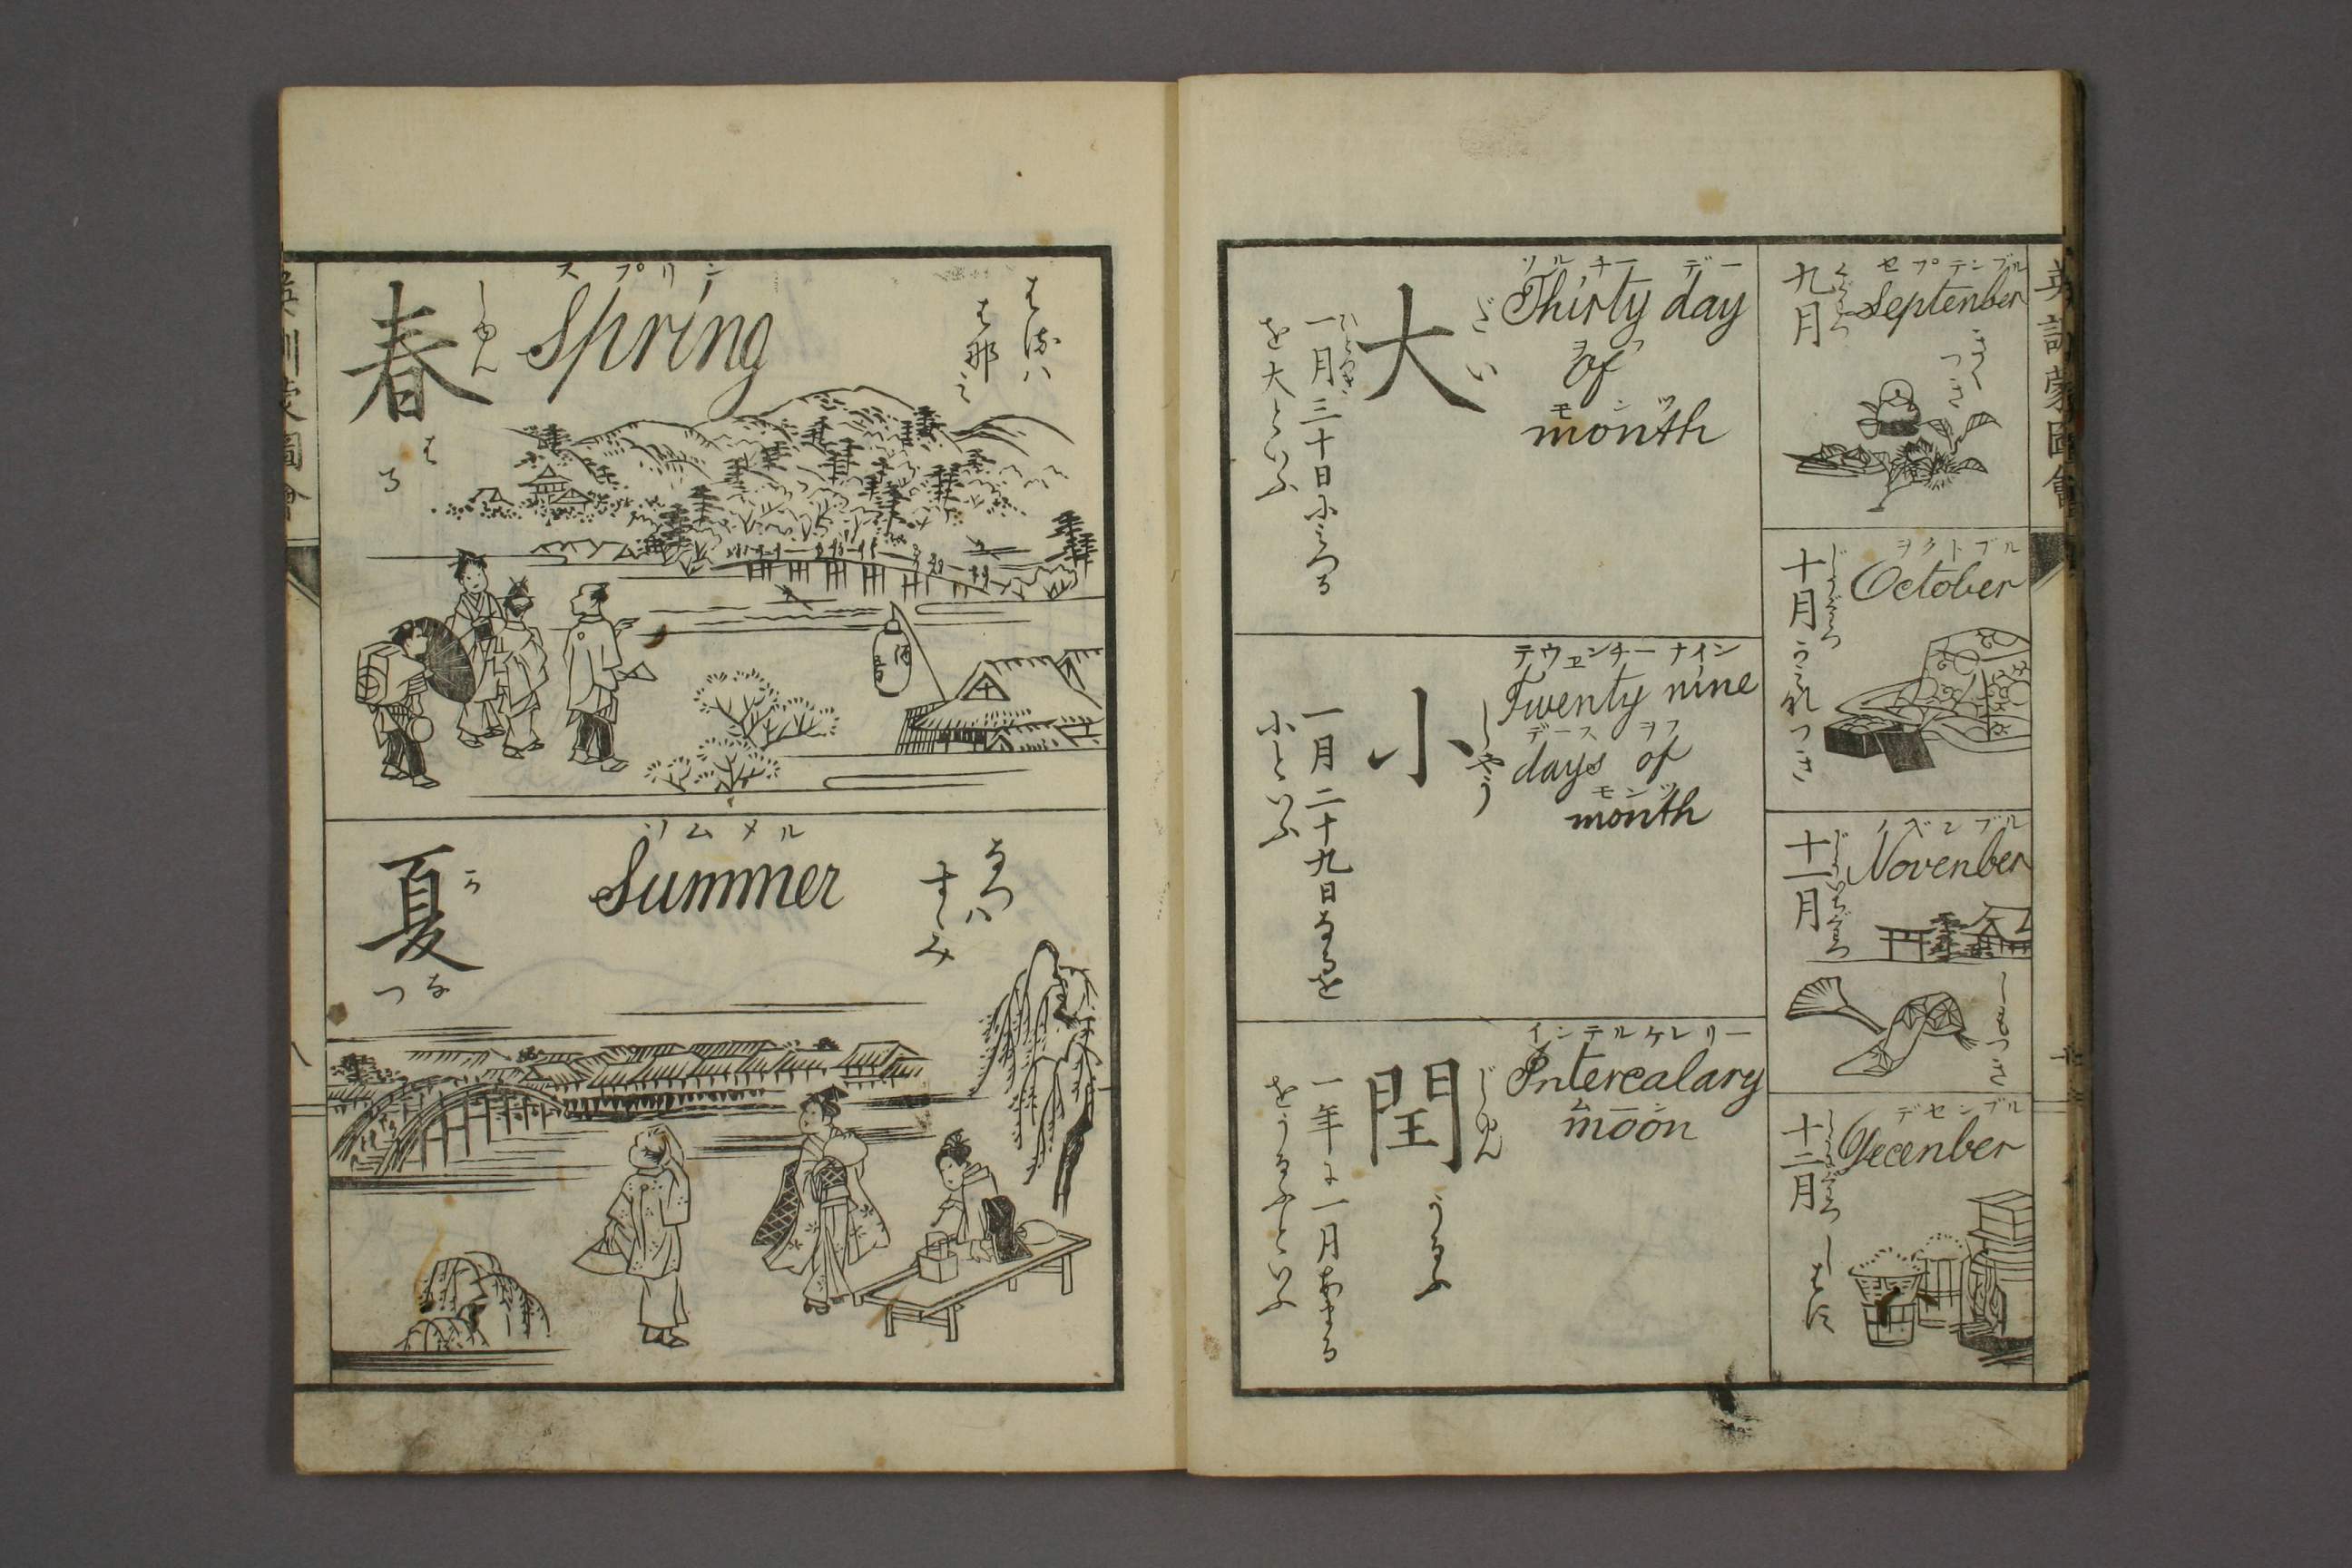 英訓蒙圖會
セプテンブル
September
九月
くぐわつ
きく
つき
ヲクトブル
October
十月
じうぐわつ
かみなれつき
ノベンブル
Novenber
十一月
じういちぐわつ
しもつき
デセンブル
Decenber
十二月
じうにぐわつ
しはす
ソルチー デー
Thirty day
ヲフ
of
モンツ
month
だい
大
ひとつき
一月三十日にみつる
を大といふ
テウエンチー ナイン
Twenty nine
デース ヲフ
days of
モンツ
month
しやう
小
一月二十九日なるを
小といふ
インテルケレリー
Intercalary
ムーン
moon
じゆん
閏
うるふ
一年に一月あまる
をうるふといふ
はるハ
はな
スプリン
Spring
しゆん
春
はる
酒
なつハ
すゞみ
ソムメル
Summer
か
夏
なつ
英訓蒙圖會
八